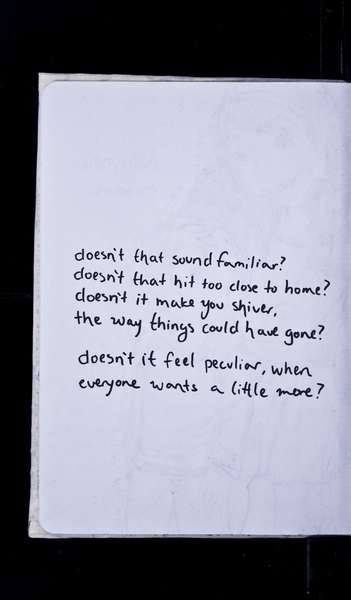 doesn't that sound familiar?
doesn't that hit too close to home?
doesn't it make you shiver,
the way things could have gone?
doesn't it feel peculiar, when
everyone wants a little more?